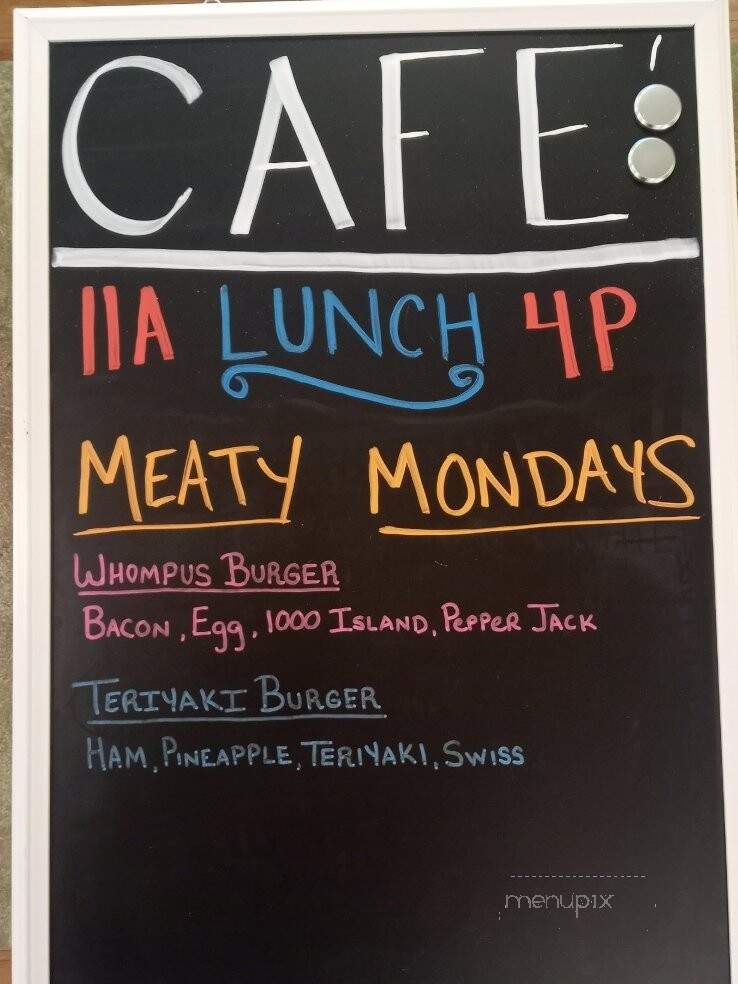 CAFÉ
11A LUNCH 4P
MEATY MONDAYS
WHOMPUS BURGER
BACON, Egg, 1000 ISLAND, PEPPER JACK
TERIYAKI BURGER
HAM, PINEAPPLE, TERIYAKI, SWISS
menupix